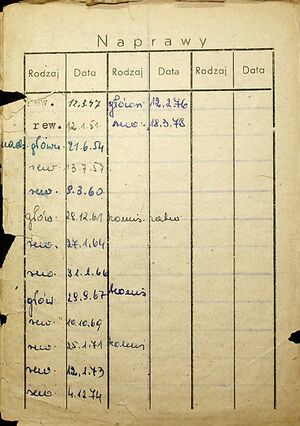 Naprawy
Rodzaj Data Rodzaj Data Rodzaj Data
rew. 12.3.47 główn 12.2.76
rew. 12.1.51 rew. 18.3.78
główn 21.6.54
rew 13.7.57
rew. 2.3.60
głów. 28.12.61 komis.
rew. 27.1.64
rew. 31.1.66
głów 29.9.67 komis
rew. 10.10.69
rew. 25.1.71 komis
rew. 12.1.73
rew. 4.12.74